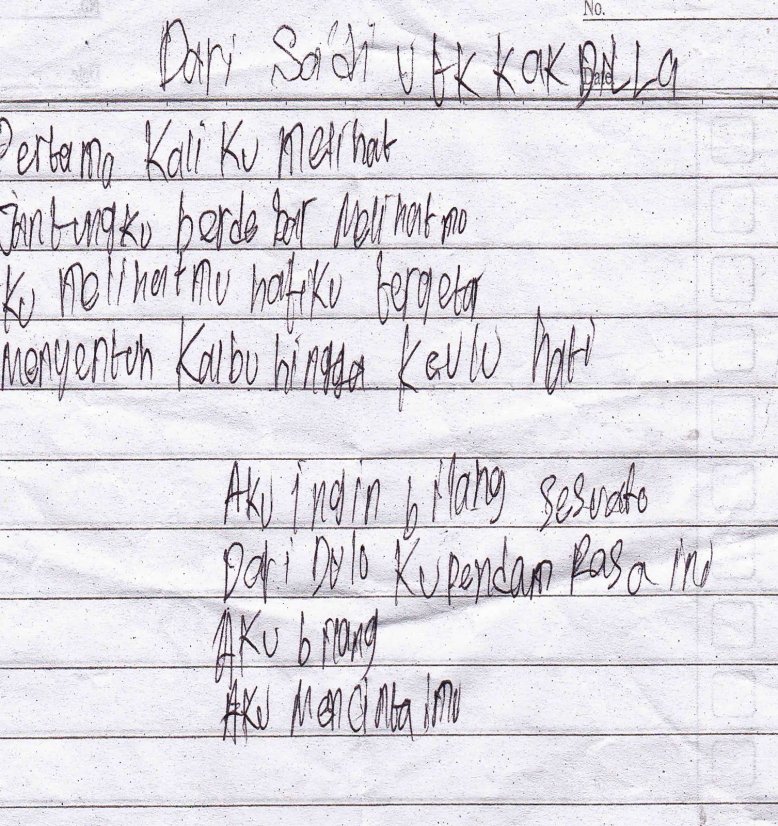 No.
Dari Saidi utk kak DILLa
Date
Pertama Kali Ku Melihat
Jantungku berdebar Melihatmu
Ku Melihatmu hatiKu bergetar
Menyentuh Kalbu hingga Keulu hati
AKu ingin bilang sesuatu
Dari Dulu Kupendam Rasa ini
AKu bilang
AKu Mencintaimu